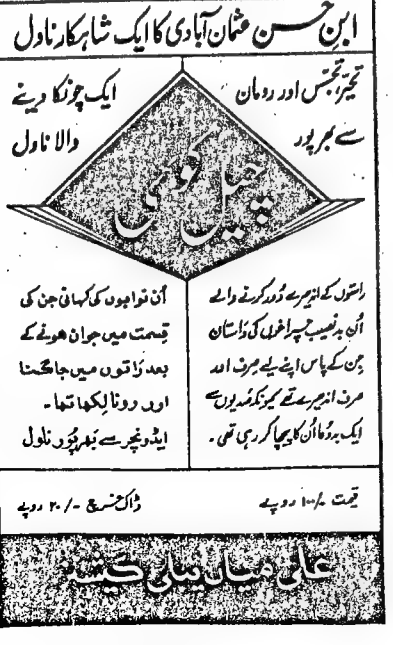 ابنِ حسن عثمان آبادی کا ایک شاہکار ناول
تحیّر، تجسّس اور رومان
سے بھرپور
ایک چونکا دینے
والا ناول
چیل کوٹھی
راستوں کے اندھیرے دُور کرنے والے
اُن بدنصیب چراغوں کی داستان
جن کے پاس اپنے لیے صرف اور
صرف اندھیرے تھے کیونکہ صدیوں سے
ایک بد دُعا اُن کا پیچھا کر رہی تھی۔
اُن نواہوں کی کہانی جن کی
قسمت میں جوان ہونے کے
بعد راتوں میں جاگنا
اور رونا لکھا تھا۔
ایڈونچر سے بھرپور ناول
قیمت ۱۰۰/- روپے
ڈاک خرچ ۲۰/- روپے
علی میاں پبلی کیشنز